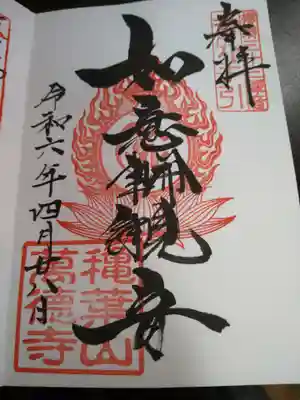 奉拝
如意輪観音
令和六年四月廿八日
穐葉山
萬德寺